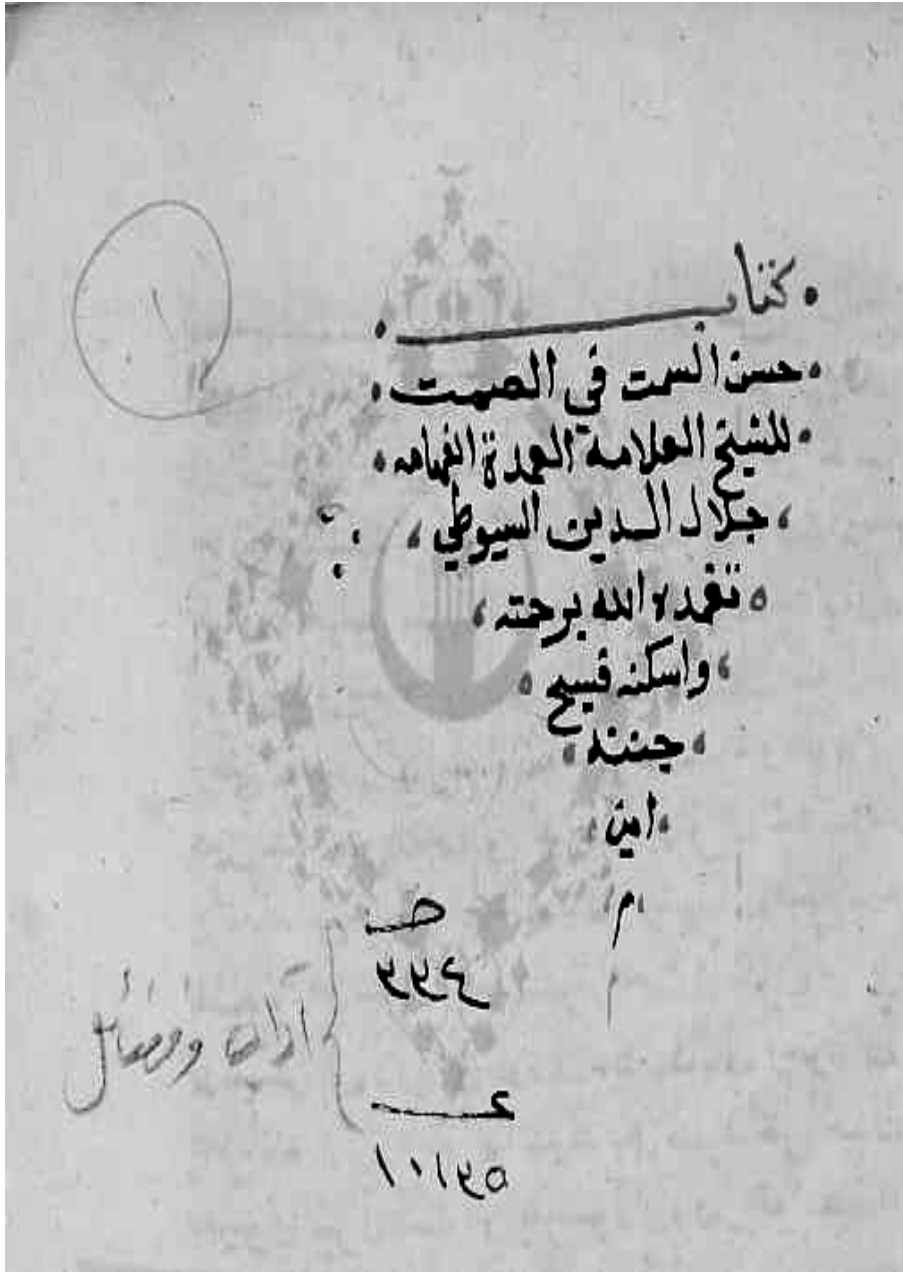 كتاب
حسن السمت في الصمت
للشيخ العلامة العمدة الفهامه
جلال الدين السيوطي
تغمده الله برحمته
واسكنه فسيح
جنته
امين
م
حـ
آداب وفضائل
عـ